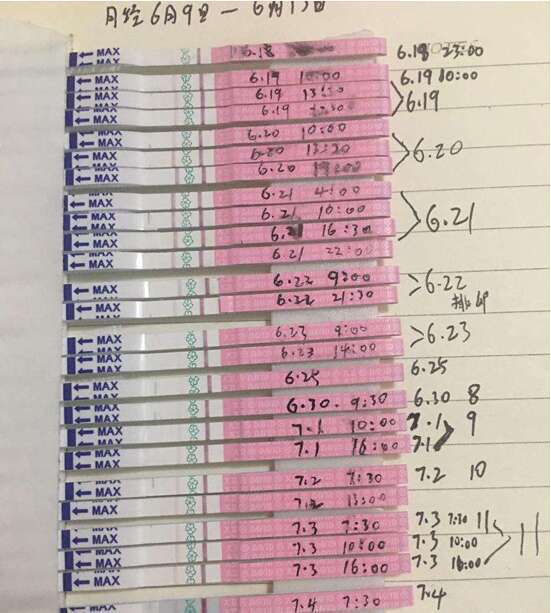 月经 6月9日 — 6月13日
MAX 6.18 6.18 23:00
MAX 6.19 10:00 6.19 10:00
MAX 6.19 13:30 6.19
MAX 6.19
MAX 6.20 10:00
MAX 6.20 13:20 6.20
MAX 6.20
MAX 6.21 4:00
MAX 6.21 10:00
MAX 6.21 16:30 6.21
MAX 6.21 22:00
MAX 6.22 9:00 6.22
MAX 6.22 21:30 排卵
MAX 6.23 9:00 6.23
MAX 6.23 14:00
MAX 6.25 6.25
MAX 6.30. 9:30 6.30 8
MAX 7.1 10:00 7.1 9
MAX 7.1 16:00 7.1
MAX 7.2 8:30 7.2 10
MAX 7.2 13:00
MAX 7.3 7:30 7.3 7:30 11
MAX 7.3 10:00 7.3 10:00 11
MAX 7.3 16:00 7.3 16:00
MAX 7.4 7:30 7.4